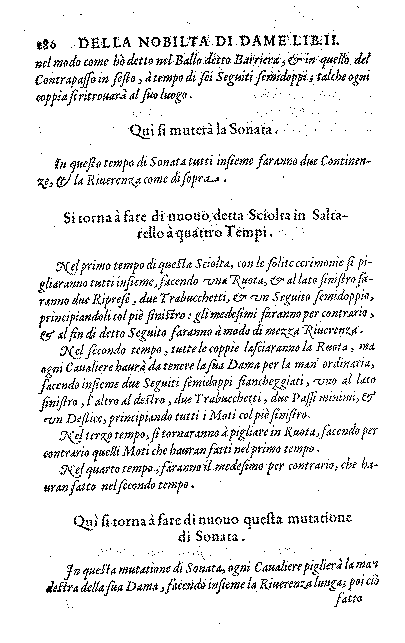 286 DELLA NOBILTA DI DAME LIB. II.
nel modo come hò detto nel Ballo detto Barriera, & in quello del
Contrapasso in sesto, à tempo di sei Seguiti semidoppi; talche ogni
coppia si ritrouarà al suo luogo.
Quì si muterà la Sonata.
In questo tempo di Sonata tutti insieme faranno due Continen-
ze, & la Riuerenza come di sopra.
Si torna à fare di nuouo detta Sciolta in Salta-
rello à quattro Tempi.
Nel primo tempo di questa Sciolta, con le solite cerimonie si pi-
gliaranno tutti insieme, facendo vna Ruota, & al lato sinistro fa-
ranno due Riprese, due Trabucchetti, & vn Seguito semidoppio,
principiandoli col piè sinistro: gli medesimi faranno per contrario,
& al fin di detto Seguito faranno à modo di mezza Riuerenza.
Nel secondo tempo, tutte le coppie lasciaranno la Ruota, ma
ogni Caualiere haurà da tenere la sua Dama per la man' ordinaria,
facendo insieme due Seguiti semidoppi fiancheggiati, vno al lato
sinistro, l'altro al destro, due Trabucchetti, due Passi minimi, &
vn Destice, principiando tutti i Moti col piè sinistro.
Nel terzo tempo, si tornaranno à pigliare in Ruota, facendo per
contrario quelli Moti che hauran fatti nel primo tempo.
Nel quarto tempo, faranno il medesimo per contrario, che ha-
uran fatto nel secondo tempo.
Quì si torna à fare di nuouo questa mutatione
di Sonata.
In questa mutatione di Sonata, ogni Caualiere piglierà la man
destra della sua Dama, facendo insieme la Riuerenza lunga; poi ciò
fatto